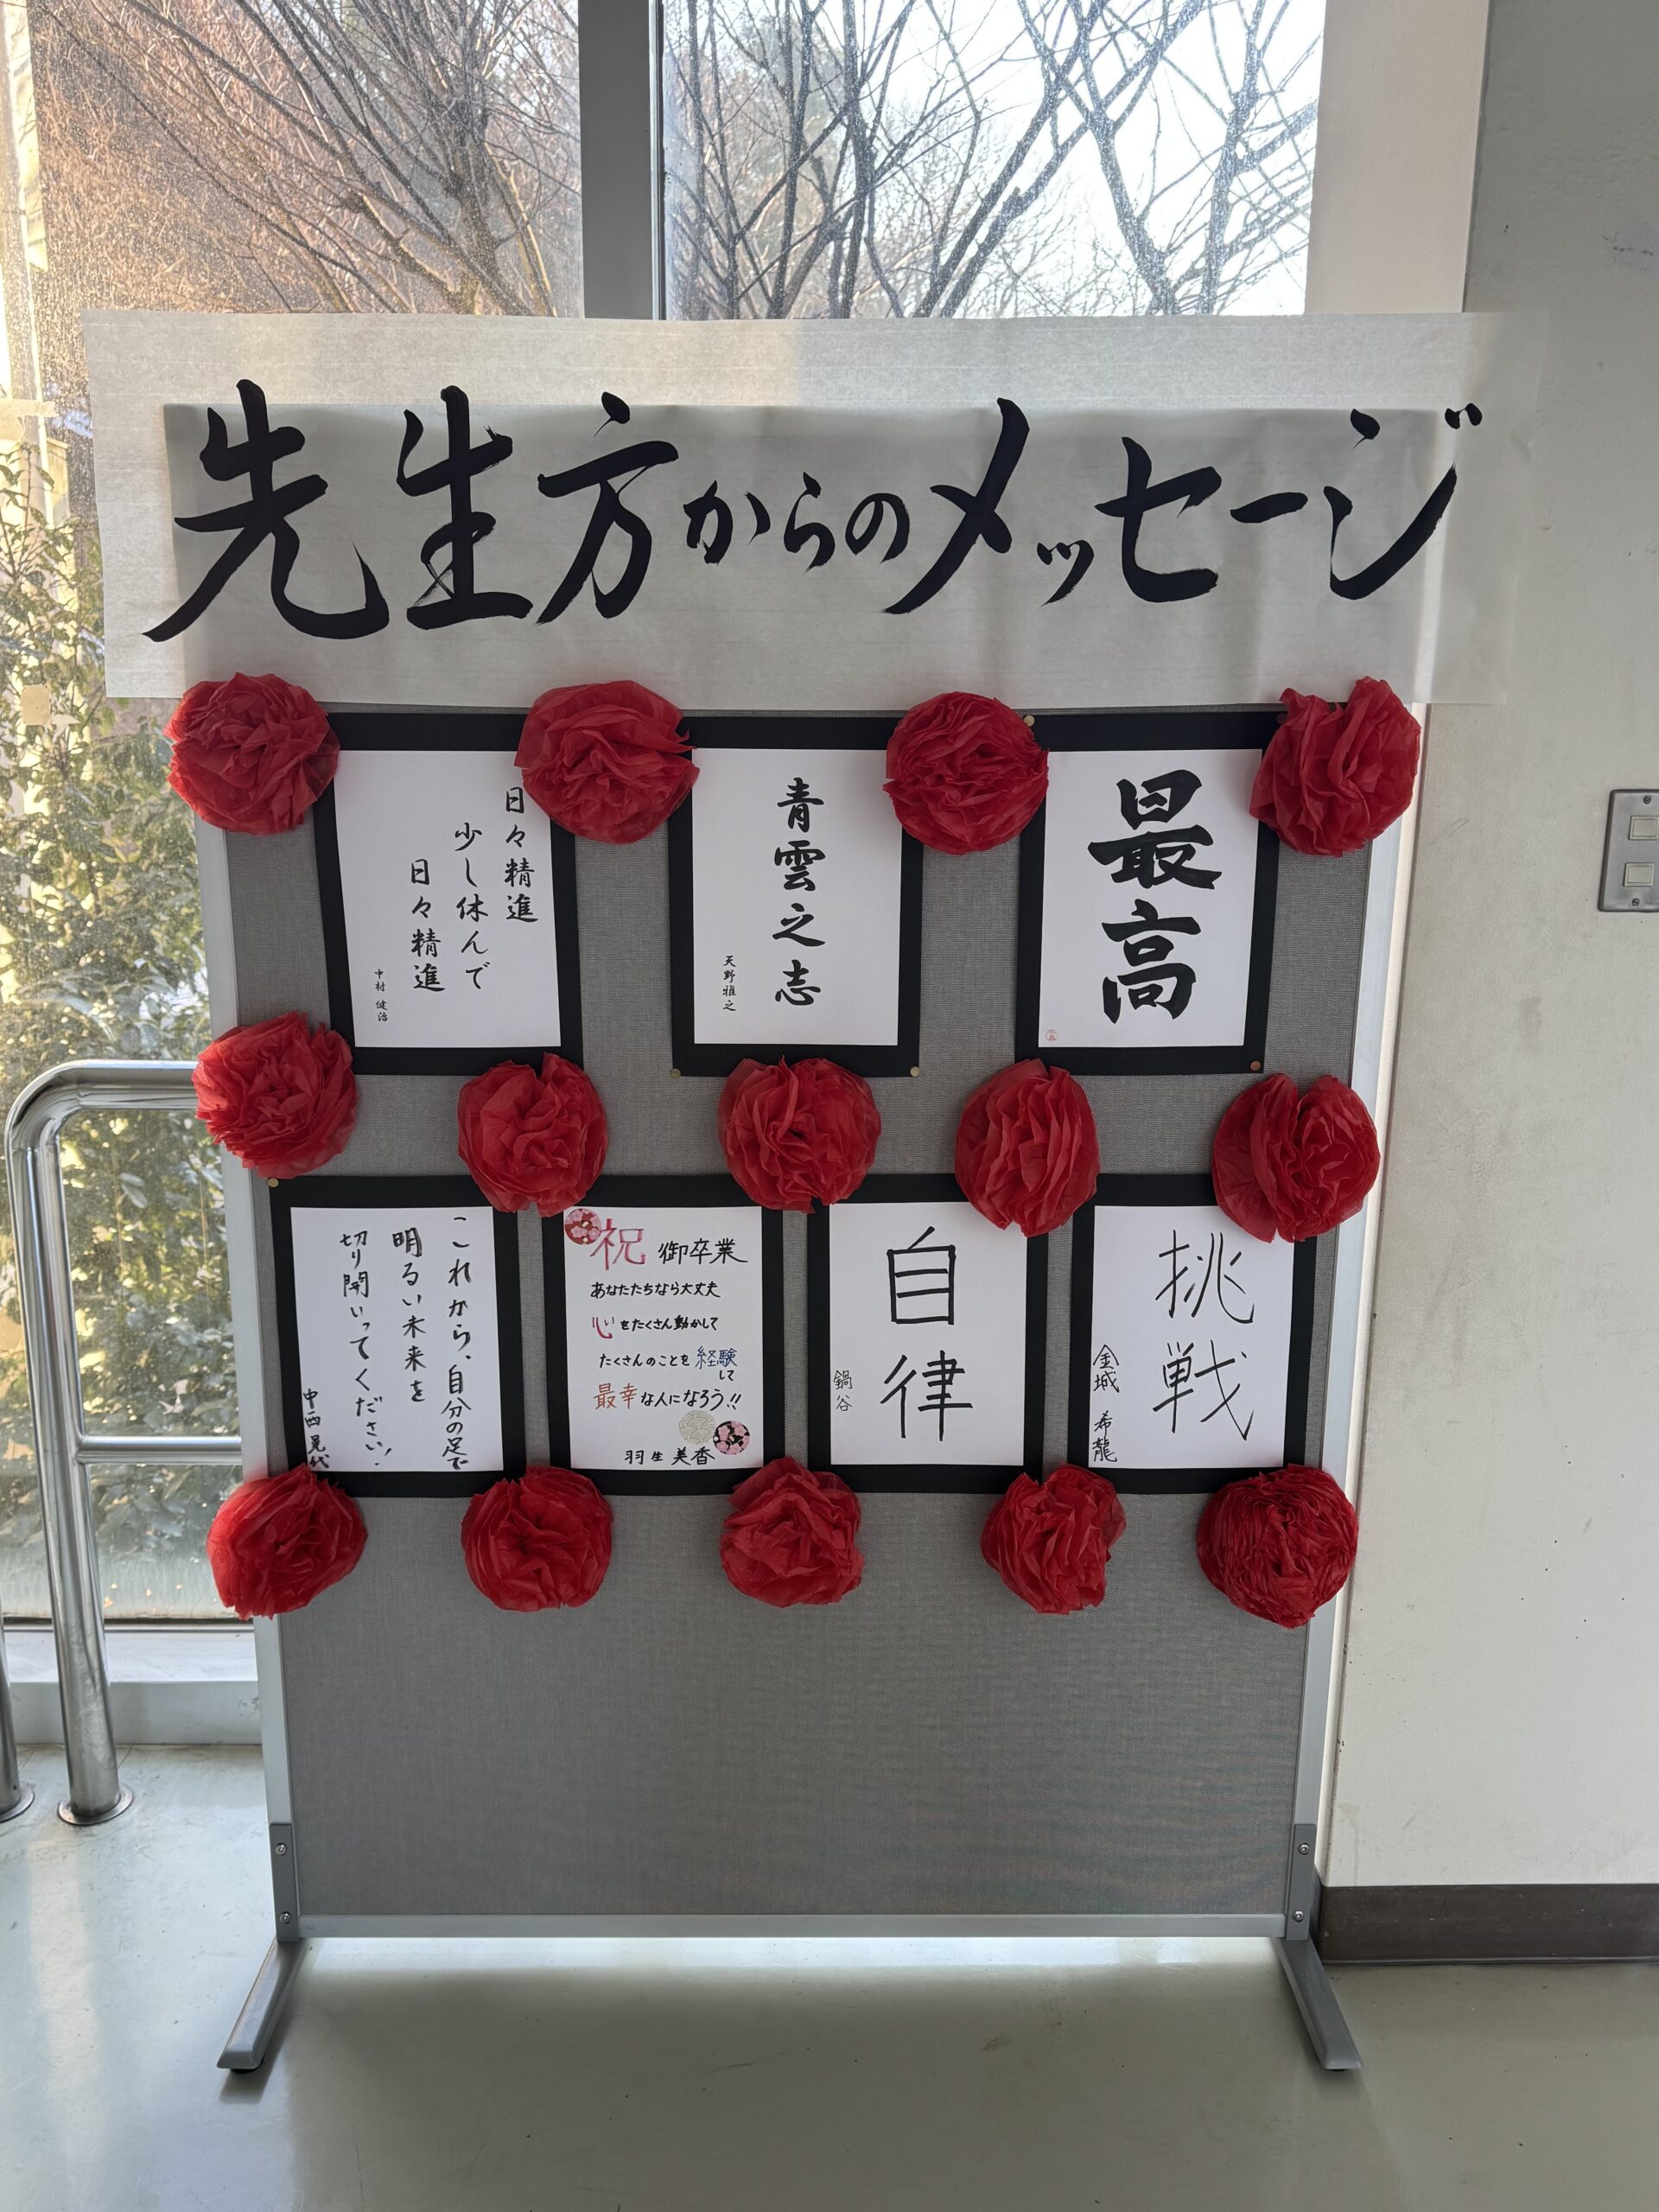 先生方からのメッセージ
日々精進
少し休んで
日々精進
中村 健治
青雲之志
天野雅之
最高
これから、自分の足で
明るい未来を
切り開いってください!
中西
祝 御卒業
あなたたちなら大丈夫
心をたくさん動かして
たくさんのことを経験
して
最幸な人になろう!!
羽生美香
自律
鍋谷
挑戦
金城 希龍